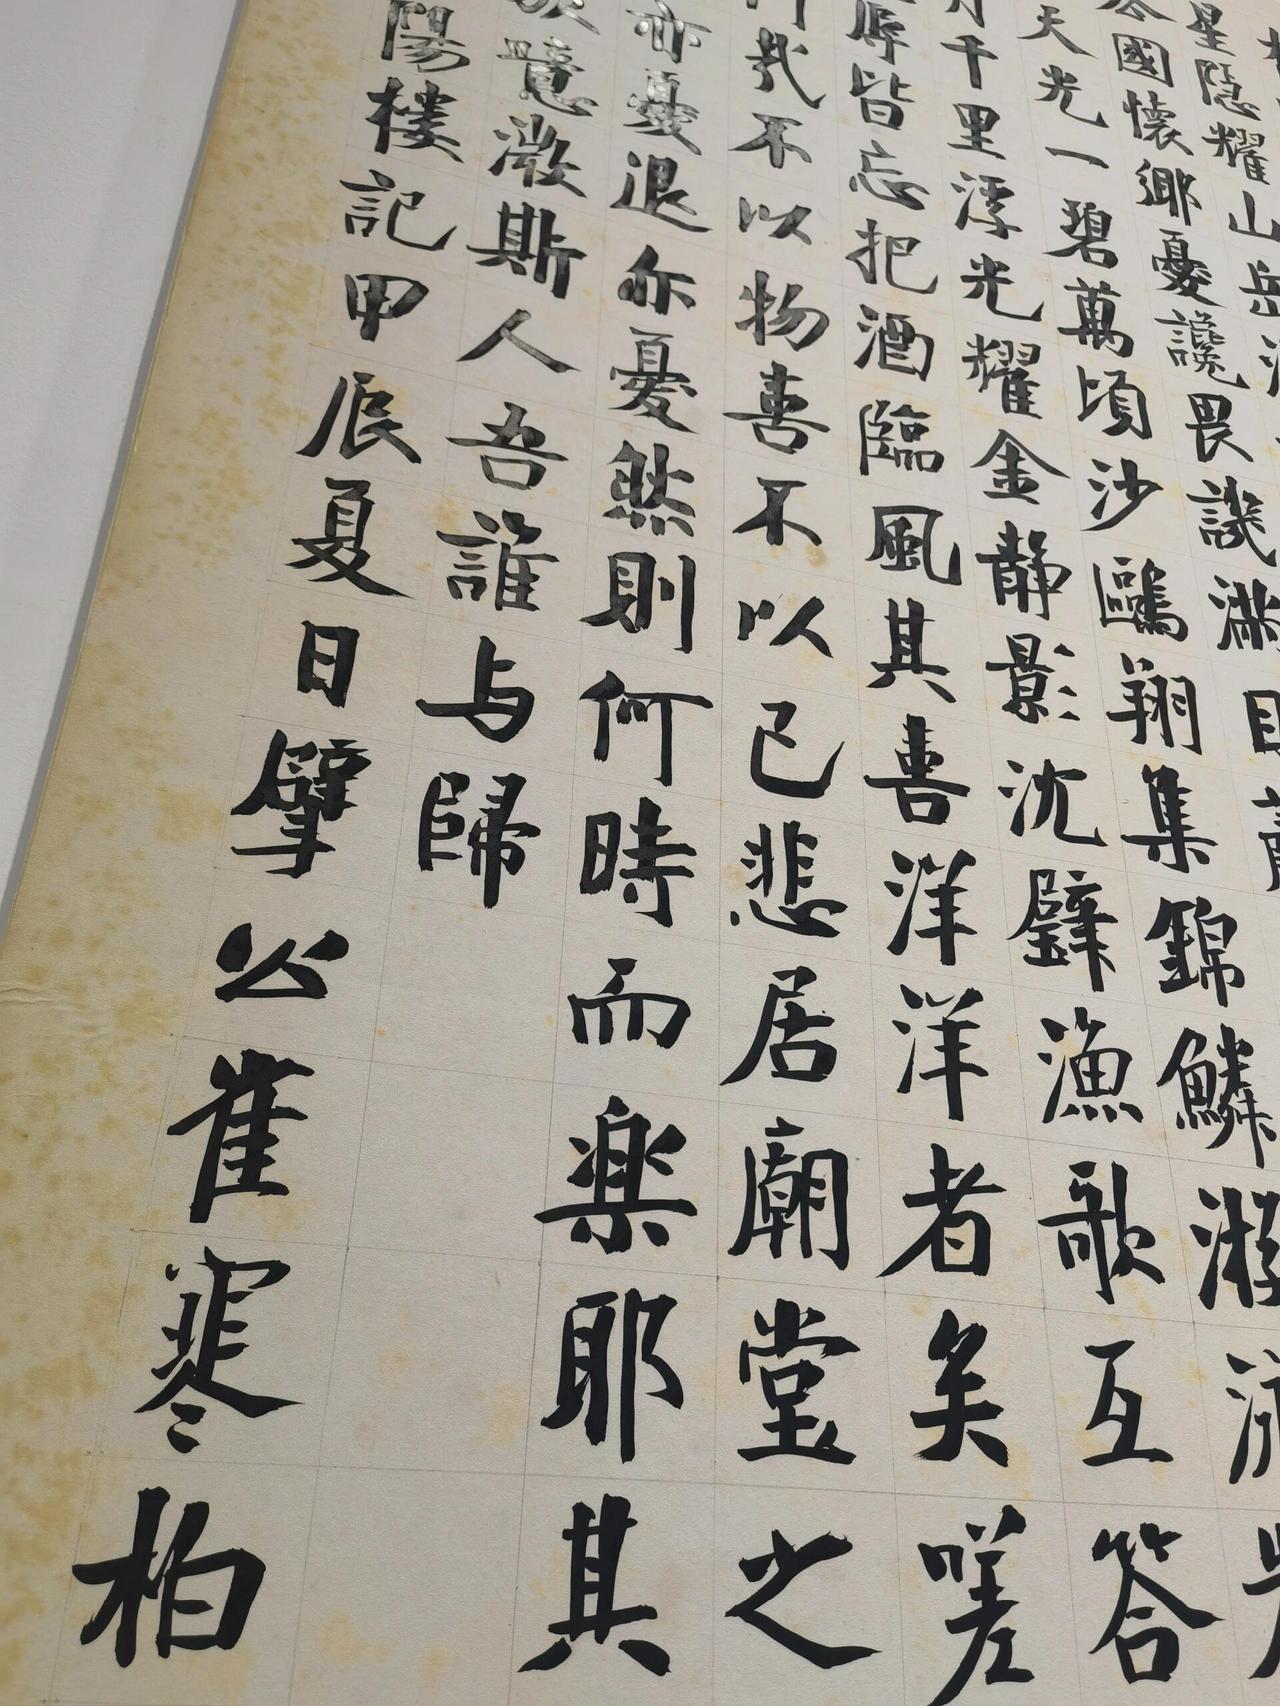 星隱耀山岳
去國懷鄉憂讒畏譏滿目蕭
天光一碧萬頃沙鷗翔集錦鱗游泳
月千里浮光耀金靜影沈璧漁歌互答
辱皆忘把酒臨風其喜洋洋者矣嗟
哉不以物喜不以己悲居廟堂之
亦憂退亦憂然則何時而楽耶其
噫微斯人吾誰与歸
陽樓記甲辰夏日擘公崔寒柏